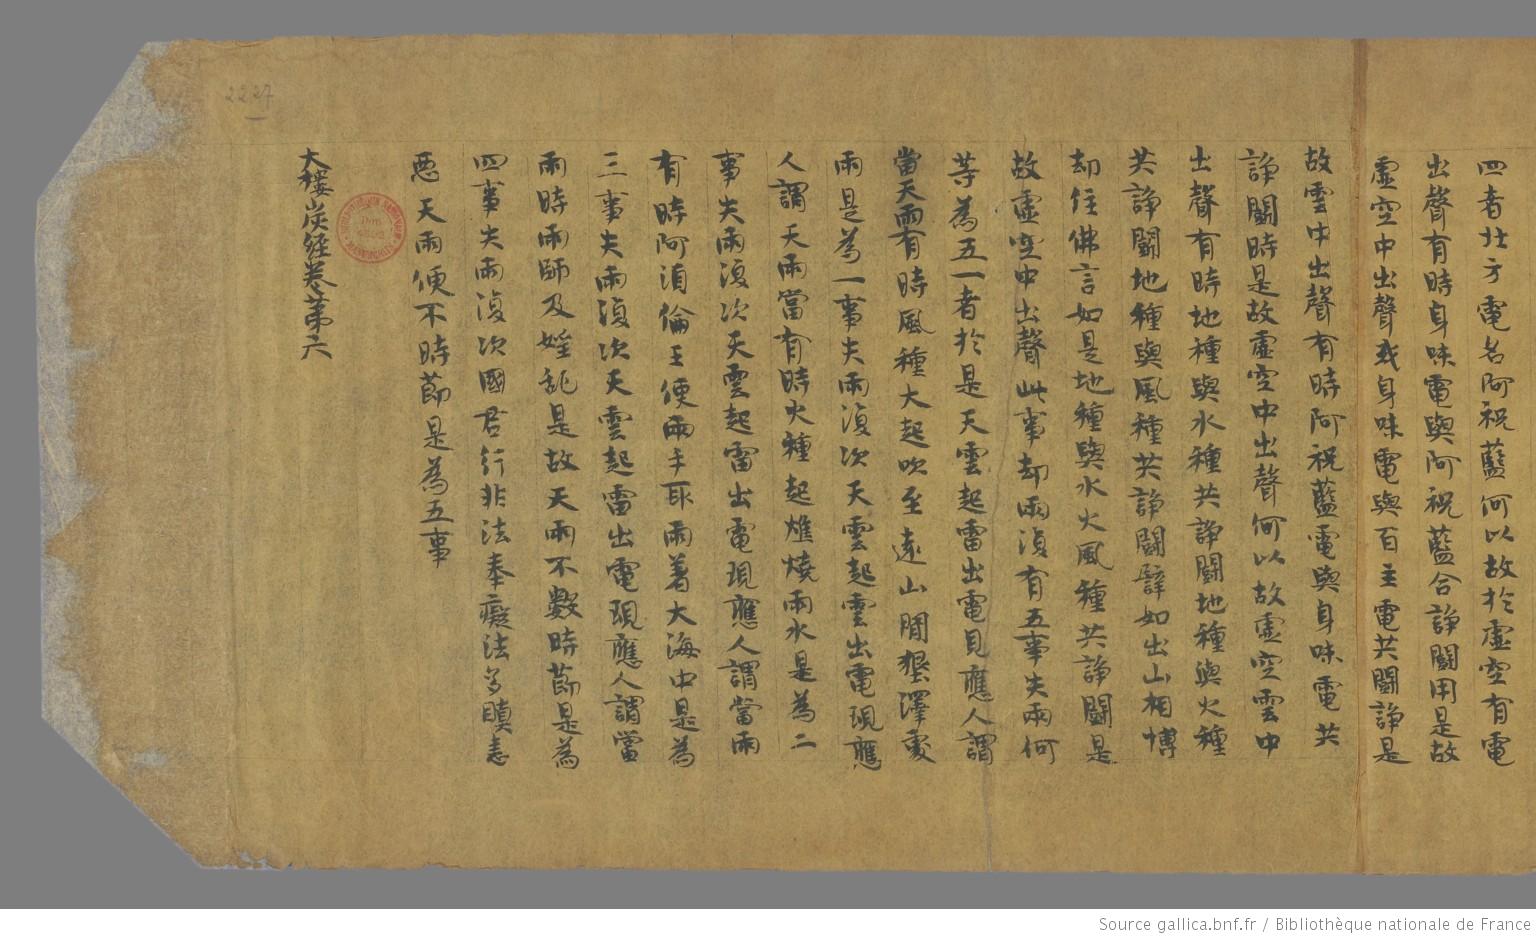 四者北方電名阿祝藍何以故於虛空有電
出聲有時身味電與阿祝藍合諍鬪用是故
虛空中出聲或身味電與百主電共鬪諍是
故雲中出聲有時阿祝藍電與身味電共
諍鬪時是故虛空中出聲何以故虛空雲中
出聲有時地種與水種共諍鬪地種與火種
共諍鬪地種與風種共諍鬪譬如出山相博
却住佛言如是地種與水火風種共諍鬪是
故虛空中出聲此事却雨復有五事失雨何
等為五一者於是天雲起雷出電見應人謂
當天雨有時風種大起吹至遠山間墾澤處
雨是為一事失雨復次天雲起雲出電現應
人謂天雨當有時火種起燋燒雨水是為二
事失雨復次天雲起雷出電現應人謂當雨
有時阿湏倫王便兩手取雨著大海中是為
三事失雨復次天雲起雷出電現應人謂當
雨時雨師及婬亂是故天雨不數時莭是為
四事失雨復次國君行非法奉癡法多瞋恚
惡天雨便不時莭是為五事
大樓炭經卷第六
2227
Source gallica.bnf.fr / Bibliothèque nationale de France